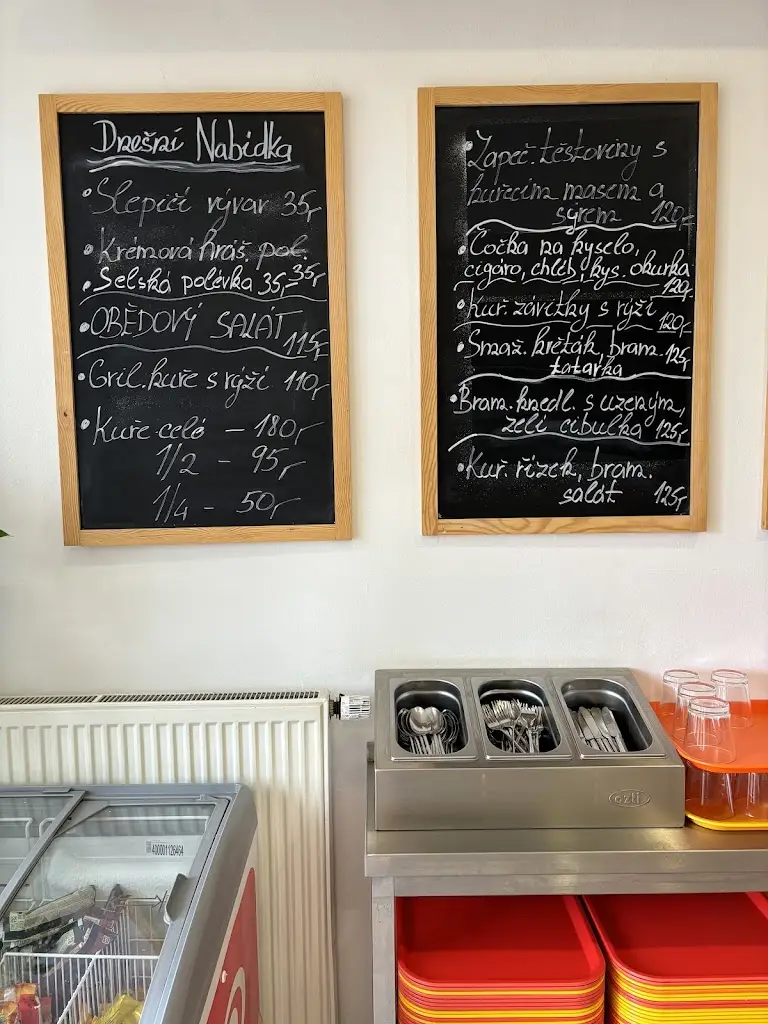 Dnešní Nabídka
• Slepičí vývar 35,-
• Krémová hráš. pol.
35,-
• Selská polévka 35,-
• OBĚDOVÝ SALÁT
115,-
• Gril. kuře s rýží 110,-
• Kuře celé - 180,-
1/2 - 95,-
1/4 - 50,-
• Zapeč. těstoviny s
kuřecím masem a
sýrem 120,-
• Čočka na kyselo,
cigáro, chléb, kys. okurka
120,-
• Kuř. závitky s rýží
120,-
• Smaž. květák, bram. 125,-
tatarka
• Bram. knedl. s uzeným,
zelí cibulka 125,-
• Kuř. řízek, bram.
salát 125,-
özti
400001126464